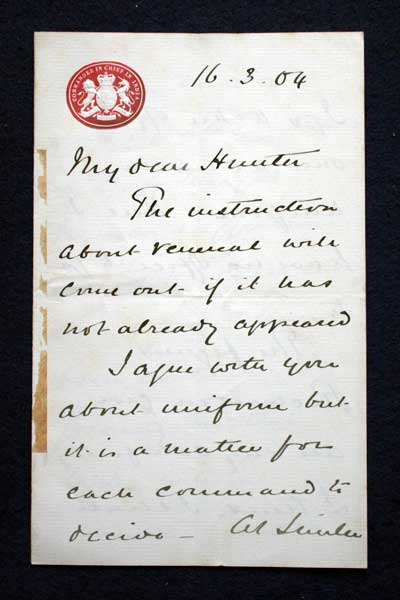 COMMANDER IN CHIEF IN INDIA
16.3.04
My dear Hunter
The instruction
about renewal will
come out if it has
not already appeared
I agree with you
about uniform but
it is a matter for
each command to
decide – At Simla